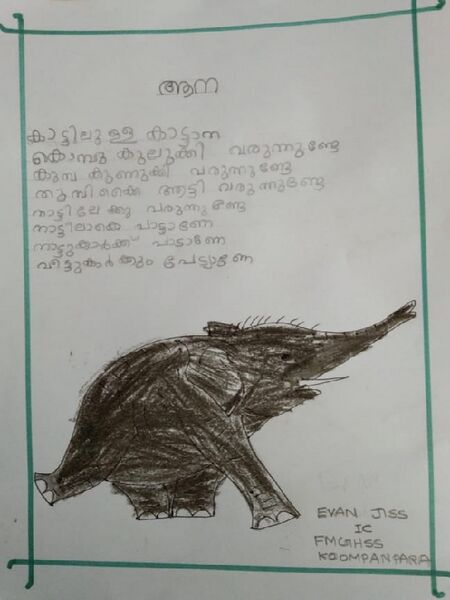 ആന
കാട്ടിലുള്ള കാട്ടാന
കൊമ്പു കുലുക്കി വരുന്നുണ്ടേ
കുമ്പ കുണുക്കി വരുന്നുണ്ടേ
തുമ്പിക്കൈ ആട്ടി വരുന്നുണ്ടേ
നാട്ടിലേക്കു വരുന്നുണ്ടേ
നാട്ടിലാകെ പാട്ടാണേ
നാട്ടുകാർക്ക് പാട്ടാണേ
വീട്ടുകാർക്കും പേട്യാണേ
EVAN JISS
IC
FMGHSS
KOOMPANPARA